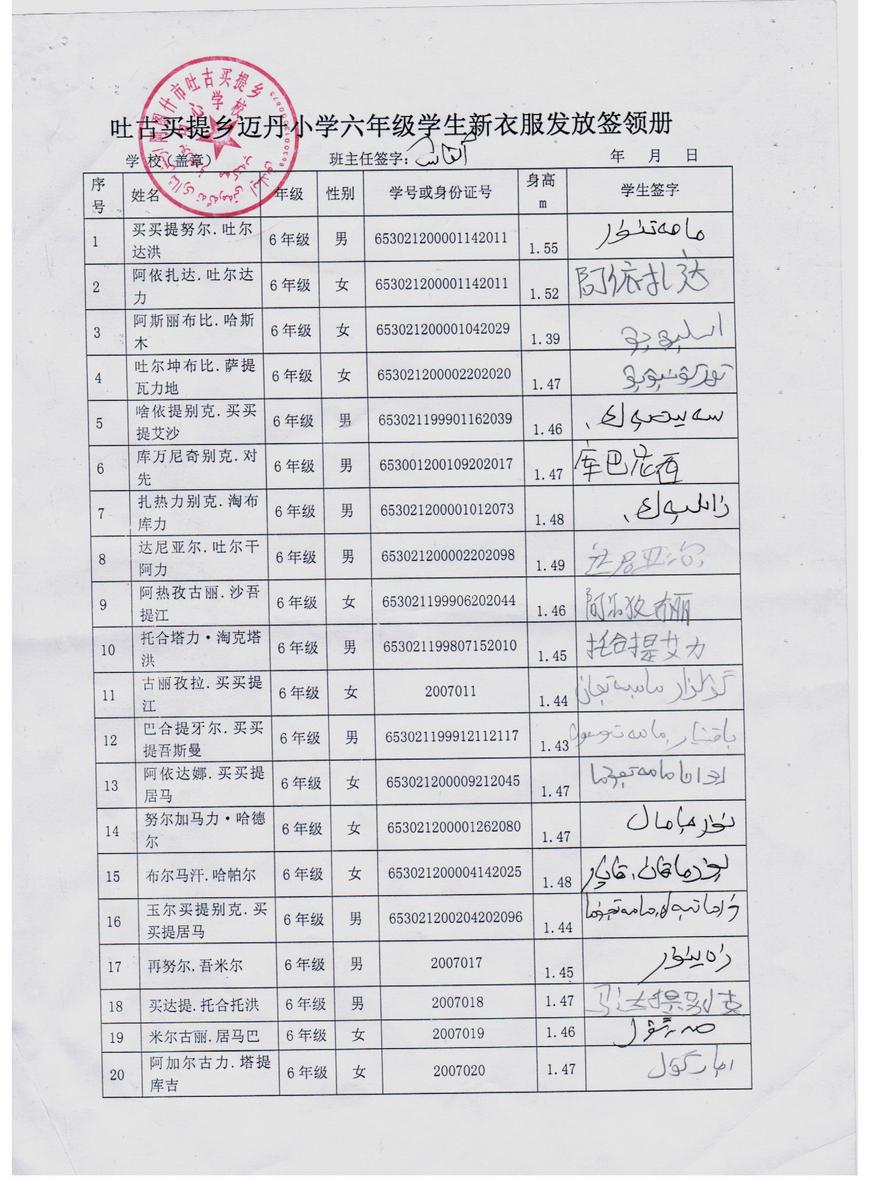 吐古买提乡迈丹小学六年级学生新衣服发放签领册
学 校（盖章） 班主任签字： 年 月 日
序号 姓名 年级 性别 学号或身份证号 身高 m 学生签字
1 买买提努尔.吐尔达洪 6 年级 男 653021200001142011 1.55
2 阿依扎达.吐尔达力 6 年级 女 653021200001142011 1.52 阿依扎达
3 阿斯丽布比.哈斯木 6 年级 女 653021200001042029 1.39
4 吐尔坤布比.萨提瓦力地 6 年级 女 653021200002202020 1.47
5 啥依提别克.买买提艾沙 6 年级 男 653021199901162039 1.46
6 库万尼奇别克.对先 6 年级 男 653001200109202017 1.47
7 扎热力别克.淘布库力 6 年级 男 653021200001012073 1.48
8 达尼亚尔.吐尔干阿力 6 年级 男 653021200002202098 1.49
9 阿热孜古丽.沙吾提江 6 年级 女 653021199906202044 1.46
10 托合塔力·淘克塔洪 6 年级 男 653021199807152010 1.45 托合提艾力
11 古丽孜拉.买买提江 6 年级 女 2007011 1.44
12 巴合提牙尔.买买提吾斯曼 6 年级 男 653021199912112117 1.43
13 阿依达娜.买买提居马 6 年级 女 653021200009212045 1.47
14 努尔加马力·哈德尔 6 年级 女 653021200001262080 1.47
15 布尔马汗.哈帕尔 6 年级 女 653021200004142025 1.48
16 玉尔买提别克.买买提居马 6 年级 男 653021200204202096 1.44
17 再努尔.吾米尔 6 年级 男 2007017 1.45
18 买达提.托合托洪 6 年级 男 2007018 1.47
19 米尔古丽.居马巴 6 年级 女 2007019 1.46
20 阿加尔古力.塔提库吉 6 年级 女 2007020 1.47